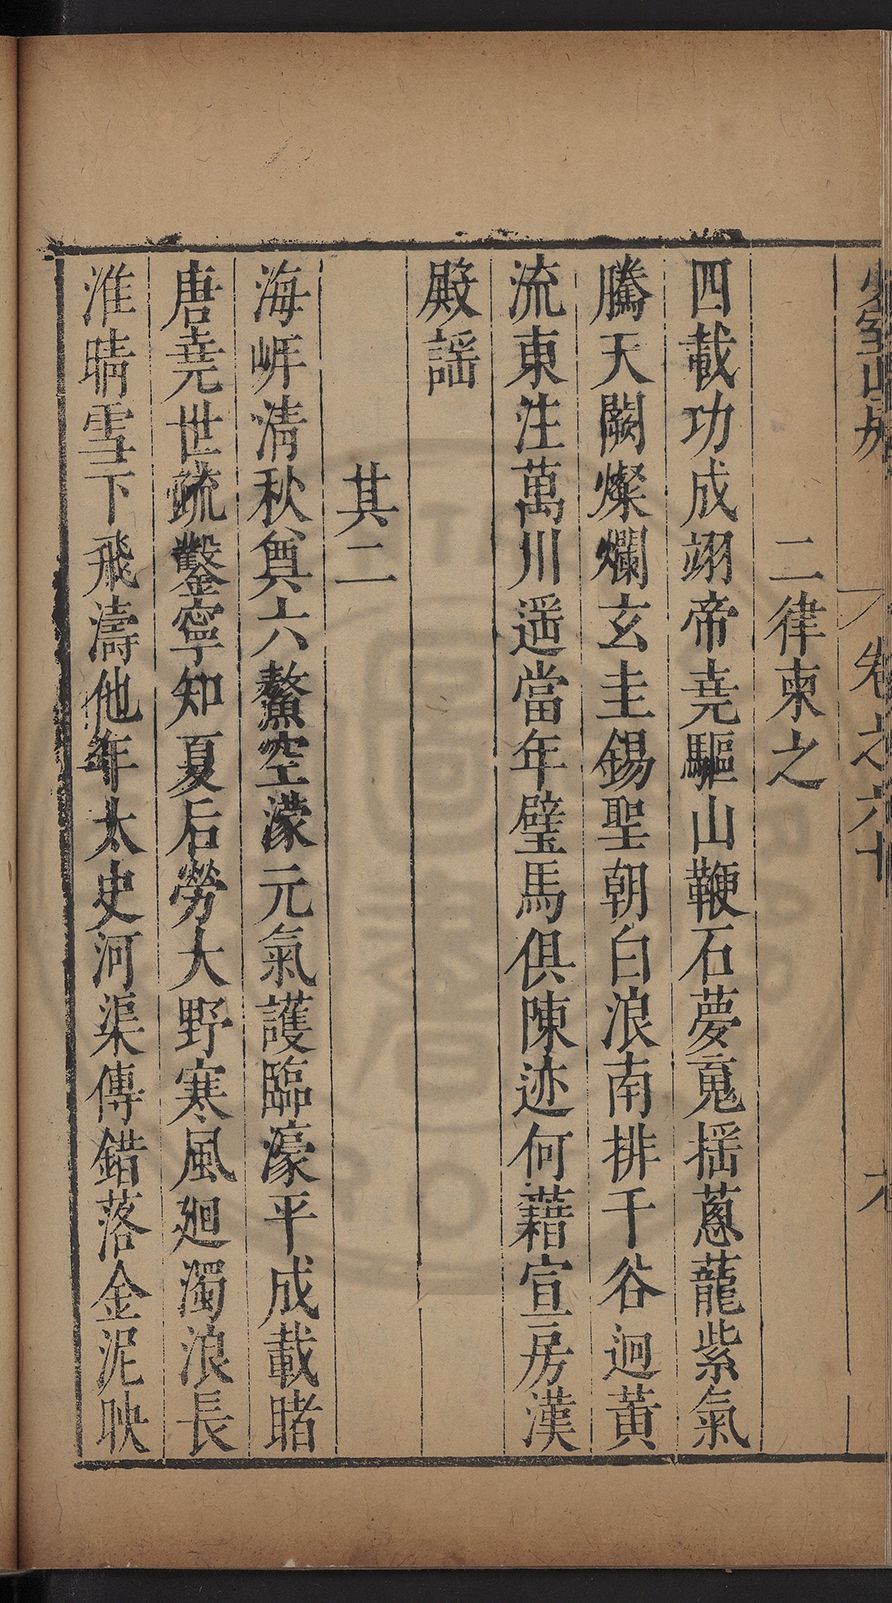 二律柬之
四載功成翊帝堯驅山鞭石夢䰟揺蔥蘢紫氣
騰天闕燦爛玄圭錫聖朝白浪南排千谷迴黃
流東注萬川遥當年璧馬俱陳迹何藉宣房漢
殿謡
其二
海𡵆清秋奠六鰲空濛元氣護臨濠平成載睹
唐堯世疏鑿寧知夏后勞大野寒風廻濁浪長
淮晴雪下飛濤他年太史河渠傳錯落金泥映